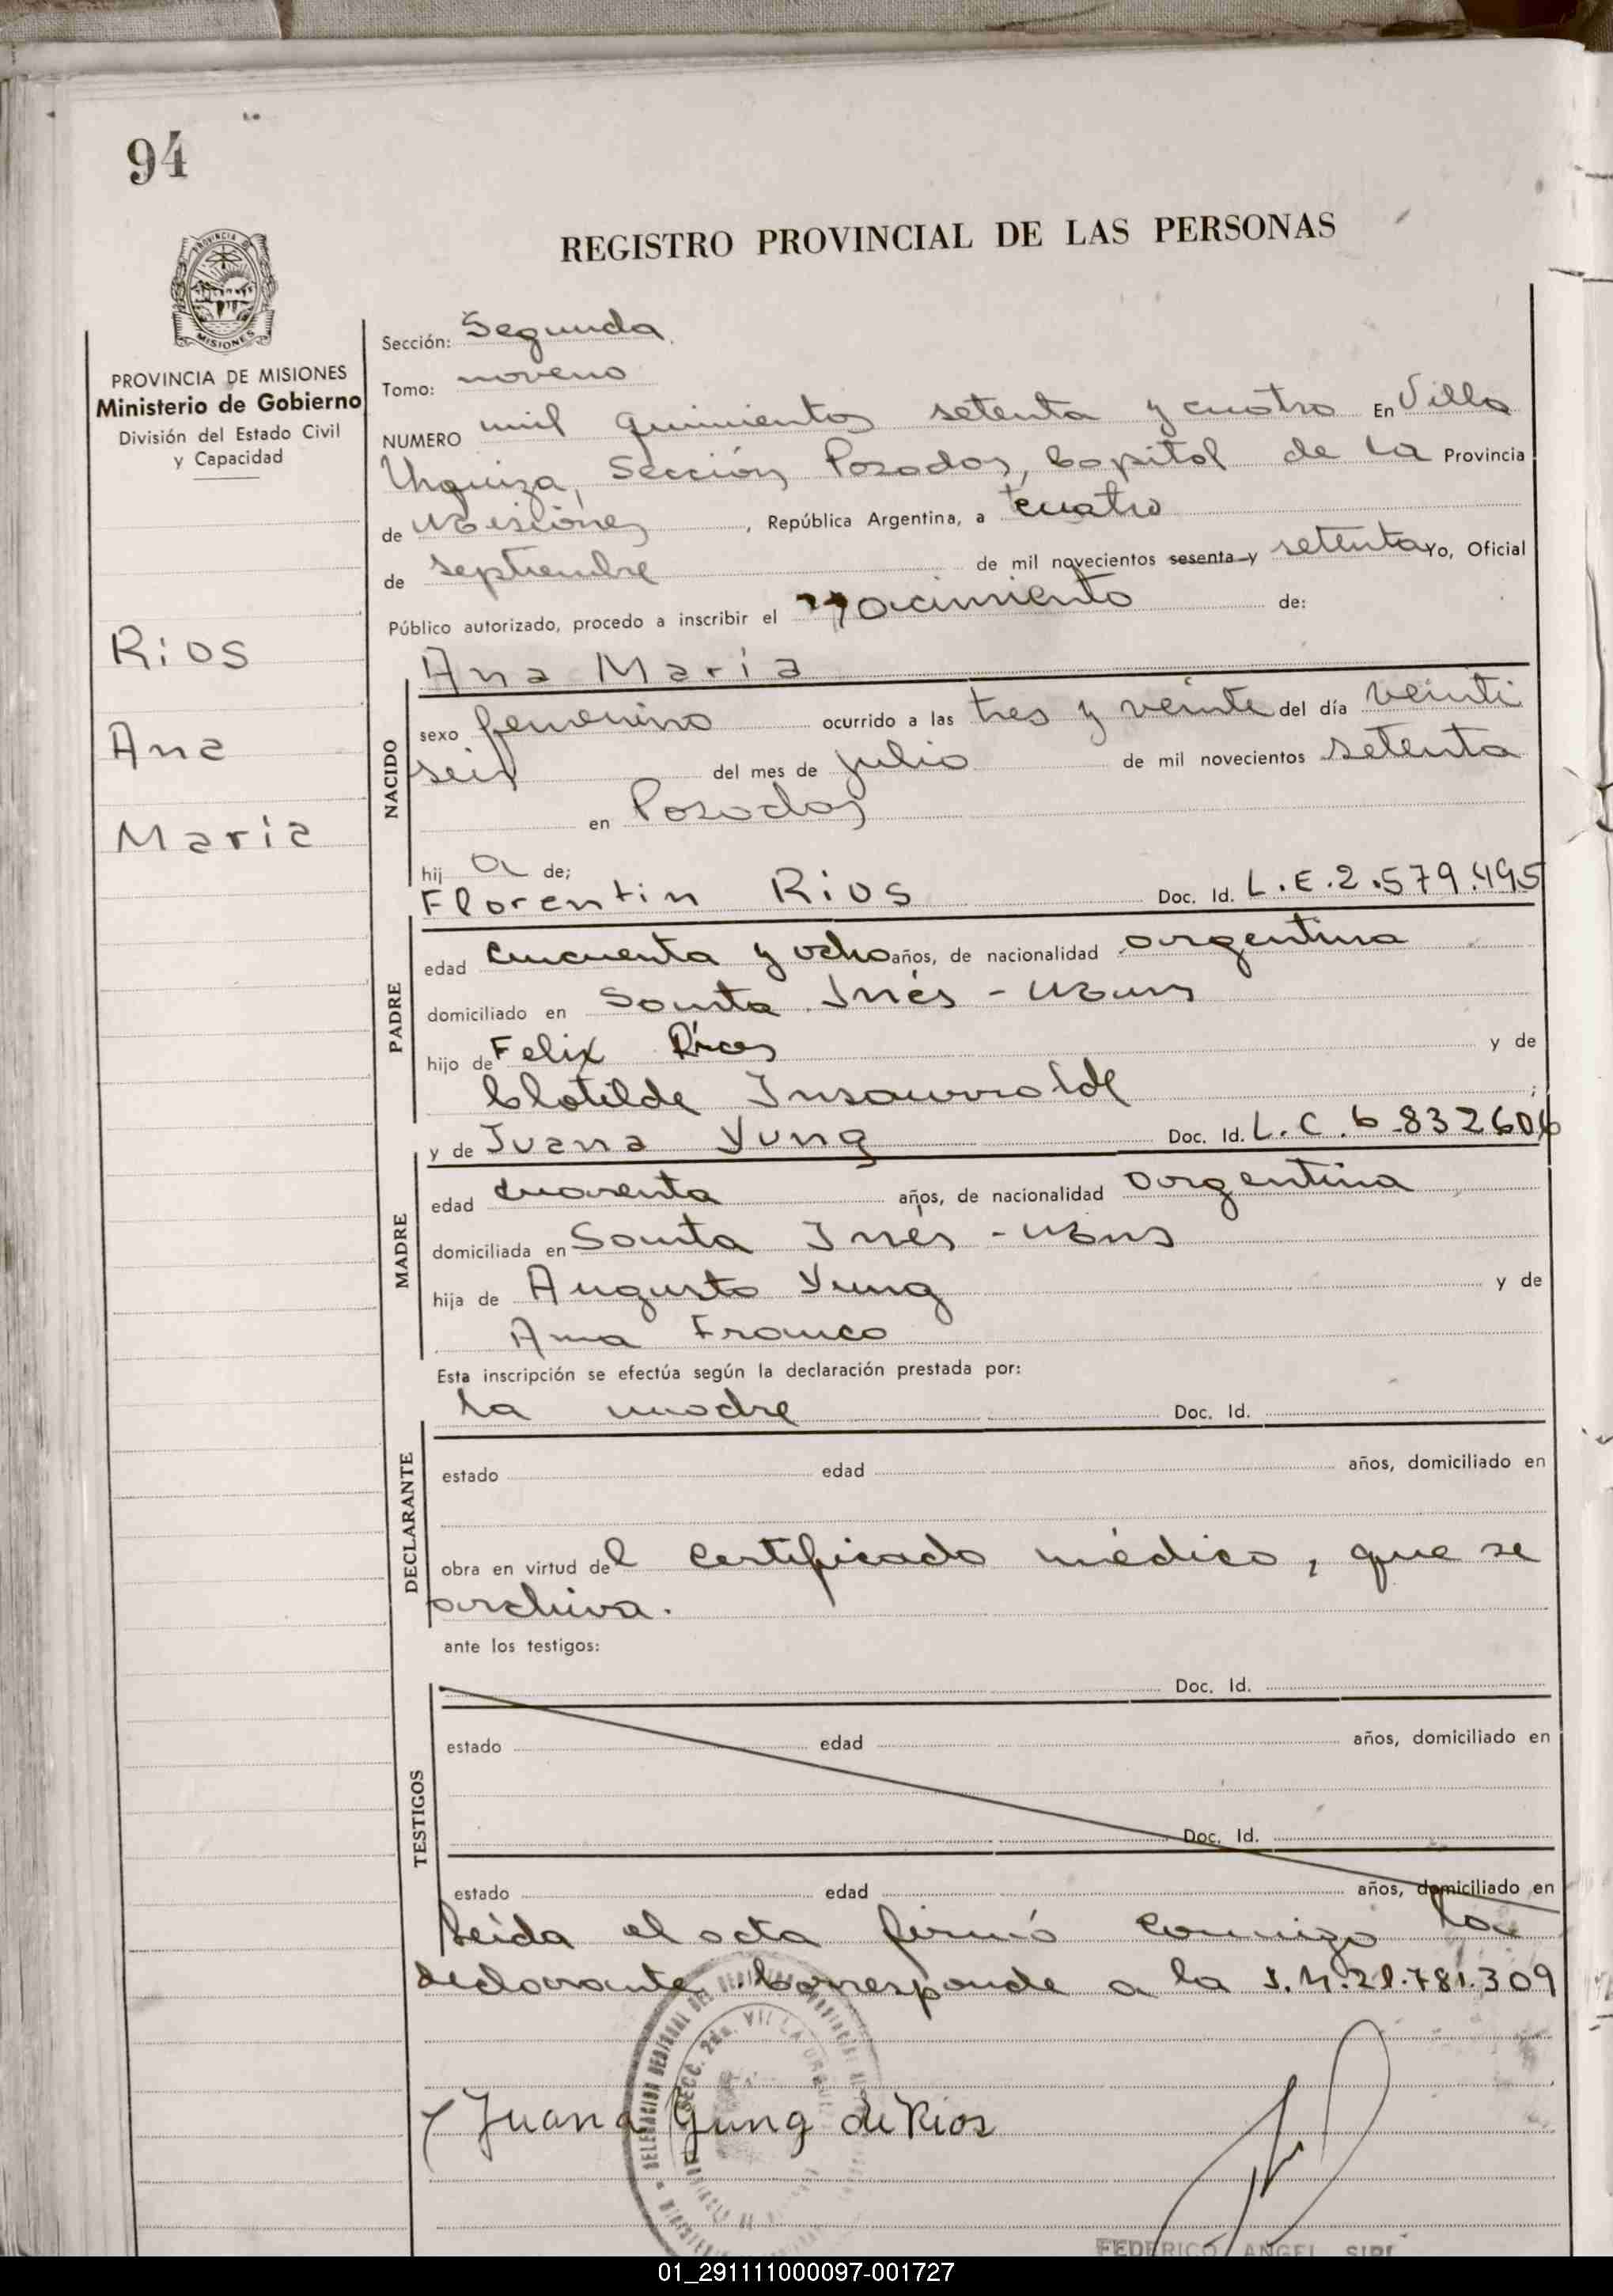 94
REGISTRO PROVINCIAL DE LAS PERSONAS
PROVINCIA DE
MISIONES
PROVINCIA DE MISIONES
Ministerio de Gobierno
División del Estado Civil
y Capacidad
Rios
Ana
Maria
Sección: Segunda
Tomo: noveno
NUMERO mil quinientos setenta y cuatro En Villa
Urquiza, Sección Posadas, Capital de la Provincia
de Misiones, República Argentina, a cuatro
de septiembre de mil novecientos sesenta y setenta Yo, Oficial
Público autorizado, procedo a inscribir el nacimiento de:
Ana María
NACIDO
sexo femenino ocurrido a las tres y veinte del día veinti
seis del mes de julio de mil novecientos setenta
en Posadas
hij a de;
Florentin Rios Doc. Id. L.E.2.579.495
PADRE
edad cincuenta y ocho años, de nacionalidad argentina
domiciliado en Santa Inés -
hijo de Felix Rios y de
Clotilde Insaurralde;
y de Juana Yung Doc. Id. L.C.6.832606
MADRE
edad cuarenta años, de nacionalidad argentina
domiciliada en Santa Inés -
hija de Augusto Yung y de
Ana Franco
Esta inscripción se efectúa según la declaración prestada por:
la madre Doc. Id.
DECLARANTE
estado edad años, domiciliado en
obra en virtud del certificado médico, que se
archiva.
ante los testigos:
Doc. Id.
TESTIGOS
estado edad años, domiciliado en
Doc. Id.
estado edad años, domiciliado en
Leída el acta firmó conmigo la
declarante. Corresponde a la 21.781.309
DELEGACION REGIONAL DEL REGISTRO PROVINCIAL
SECC. 2da. VILLA URQUIZA
Juana Yung de Rios
FEDERICO ANGEL
01_291111000097-001727